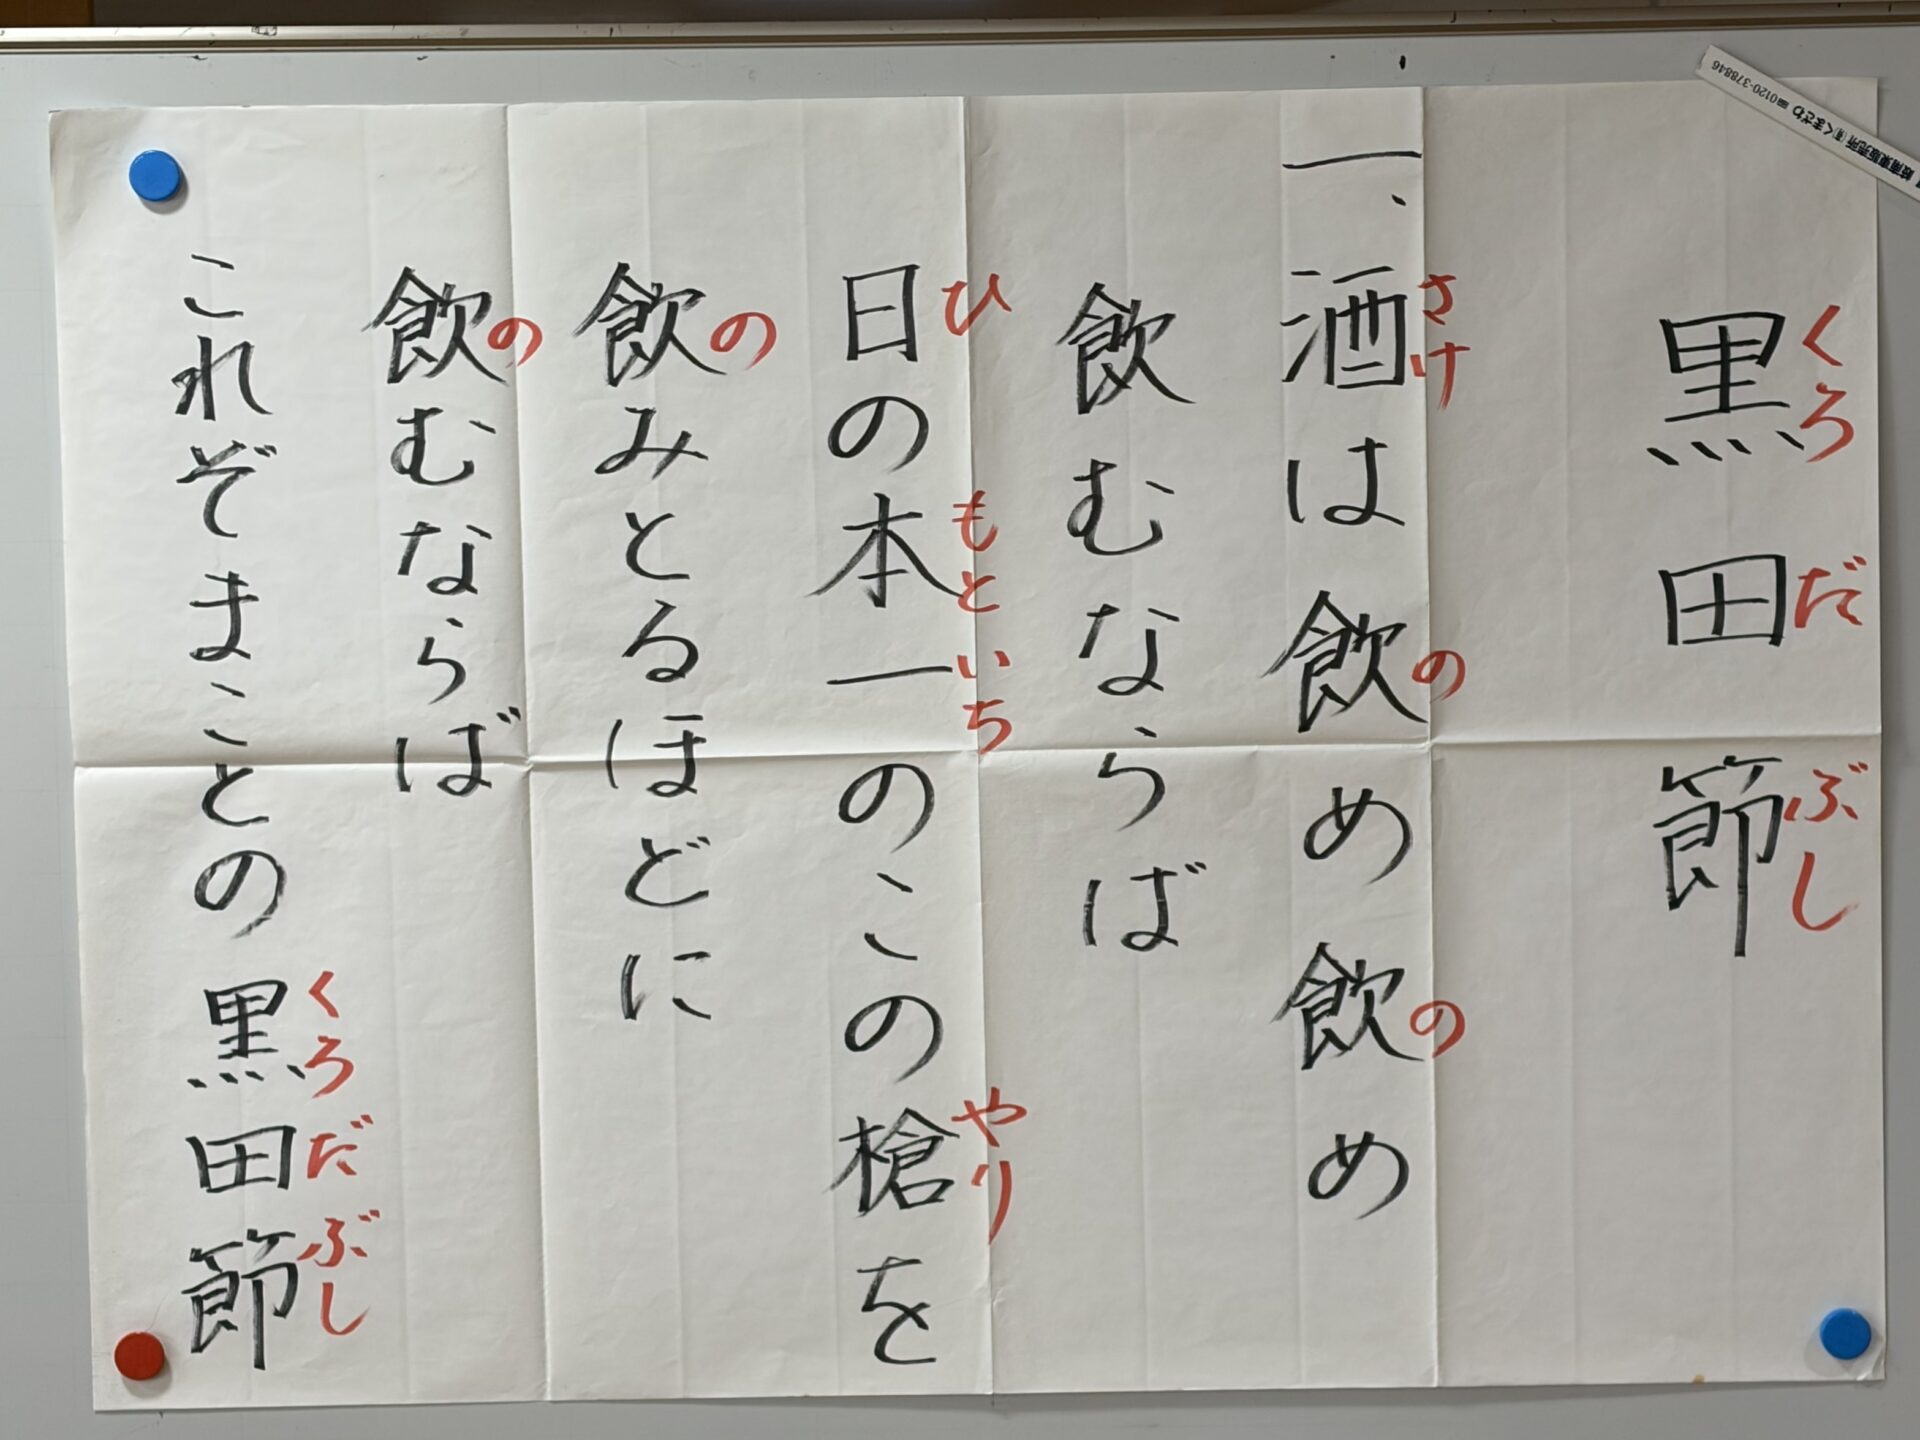 黒田節
くろだぶし
一、酒は飲め飲め
さけ の の
飲むならば
日の本一のこの槍を
ひ もといち やり
飲みとるほどに
の
飲むならば
の
これぞまことの黒田節
くろだぶし
販売所 ㈲くまざわ ☎0120-378846